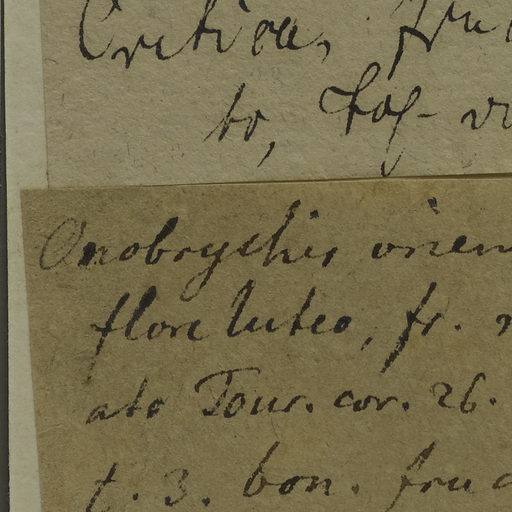 Cretica, fru
to,
Onobrychis orien
flore luteo, fr.
ato Tour. cor. 26.
t. 3. bon. fru